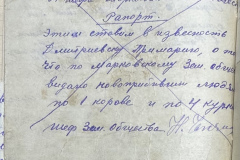 Рапорт.
Этим ставим в известность
Дмитриевску Примарию, о том
что по Марковскому Зем. общес
выдано новоприбывшим людям
по 1 корове и по 4 курк
шеф Зем. общества Н.